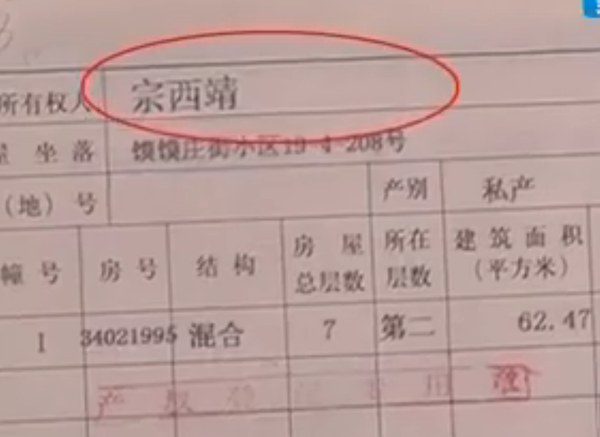 所有权人 宗西靖
坐落 馍馍庄街小区19-4-208号
（地）号 产别 私产
幢号 房号 结构 房屋总层数 所在层数 建筑面积（平方米）
1 34021995 混合 7 第二 62.47
产权